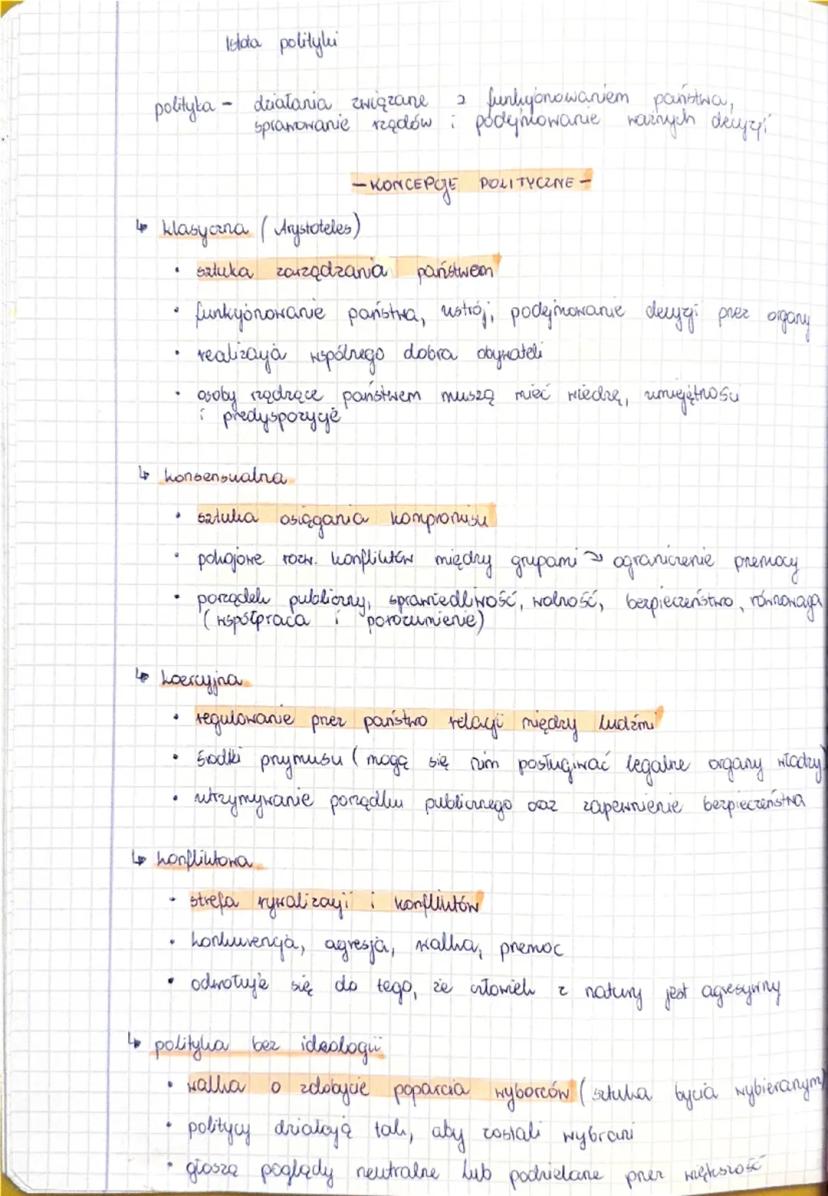 Istota polityki
polityka - działania związane z funkcjonowaniem państwa,
sprawowanie rządów i podejmowanie ważnych decyzji
- KONCEPCJE POLITYCZNE -
↳ klasyczna (Arystoteles)
• sztuka zarządzania państwem
• funkcjonowanie państwa, ustrój, podejmowanie decyzji przez organy
• realizacja wspólnego dobra obywateli
• osoby rządzące państwem muszą mieć wiedzę, umiejętności
i predyspozycje
↳ konsensualna
• sztuka osiągania kompromisu
• pokojowe rozw. konfliktów między grupami → ograniczenie przemocy
• porządek publiczny, sprawiedliwość, wolność, bezpieczeństwo, równowaga
(współpraca i porozumienie)
↳ koercyjna
• regulowanie przez państwo relacji między ludźmi
• środki przymusu (mogą się nim posługiwać legalne organy władzy)
• utrzymywanie porządku publicznego oraz zapewnienie bezpieczeństwa
↳ konfliktowa
• strefa rywalizacji i konfliktów
• konkurencja, agresja, walka, przemoc
• odwołuje się do tego, że człowiek z natury jest agresywny
↳ polityka bez ideologii
• walka o zdobycie poparcia wyborców (sztuka bycia wybieranym)
• politycy działają tak, aby zostali wybrani
• głoszą poglądy neutralne lub podzielane przez większość